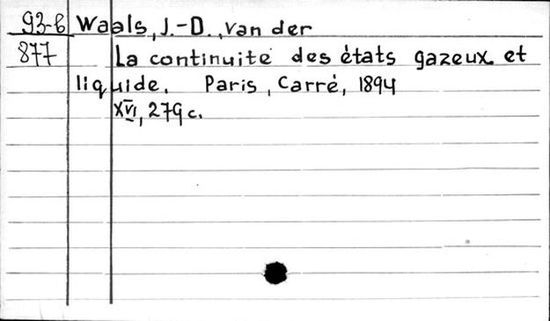 93-6 Waals, J.-D., van der
877 La continuité des états gazeux et
liquide. Paris, Carré, 1894
XVI, 279 c.